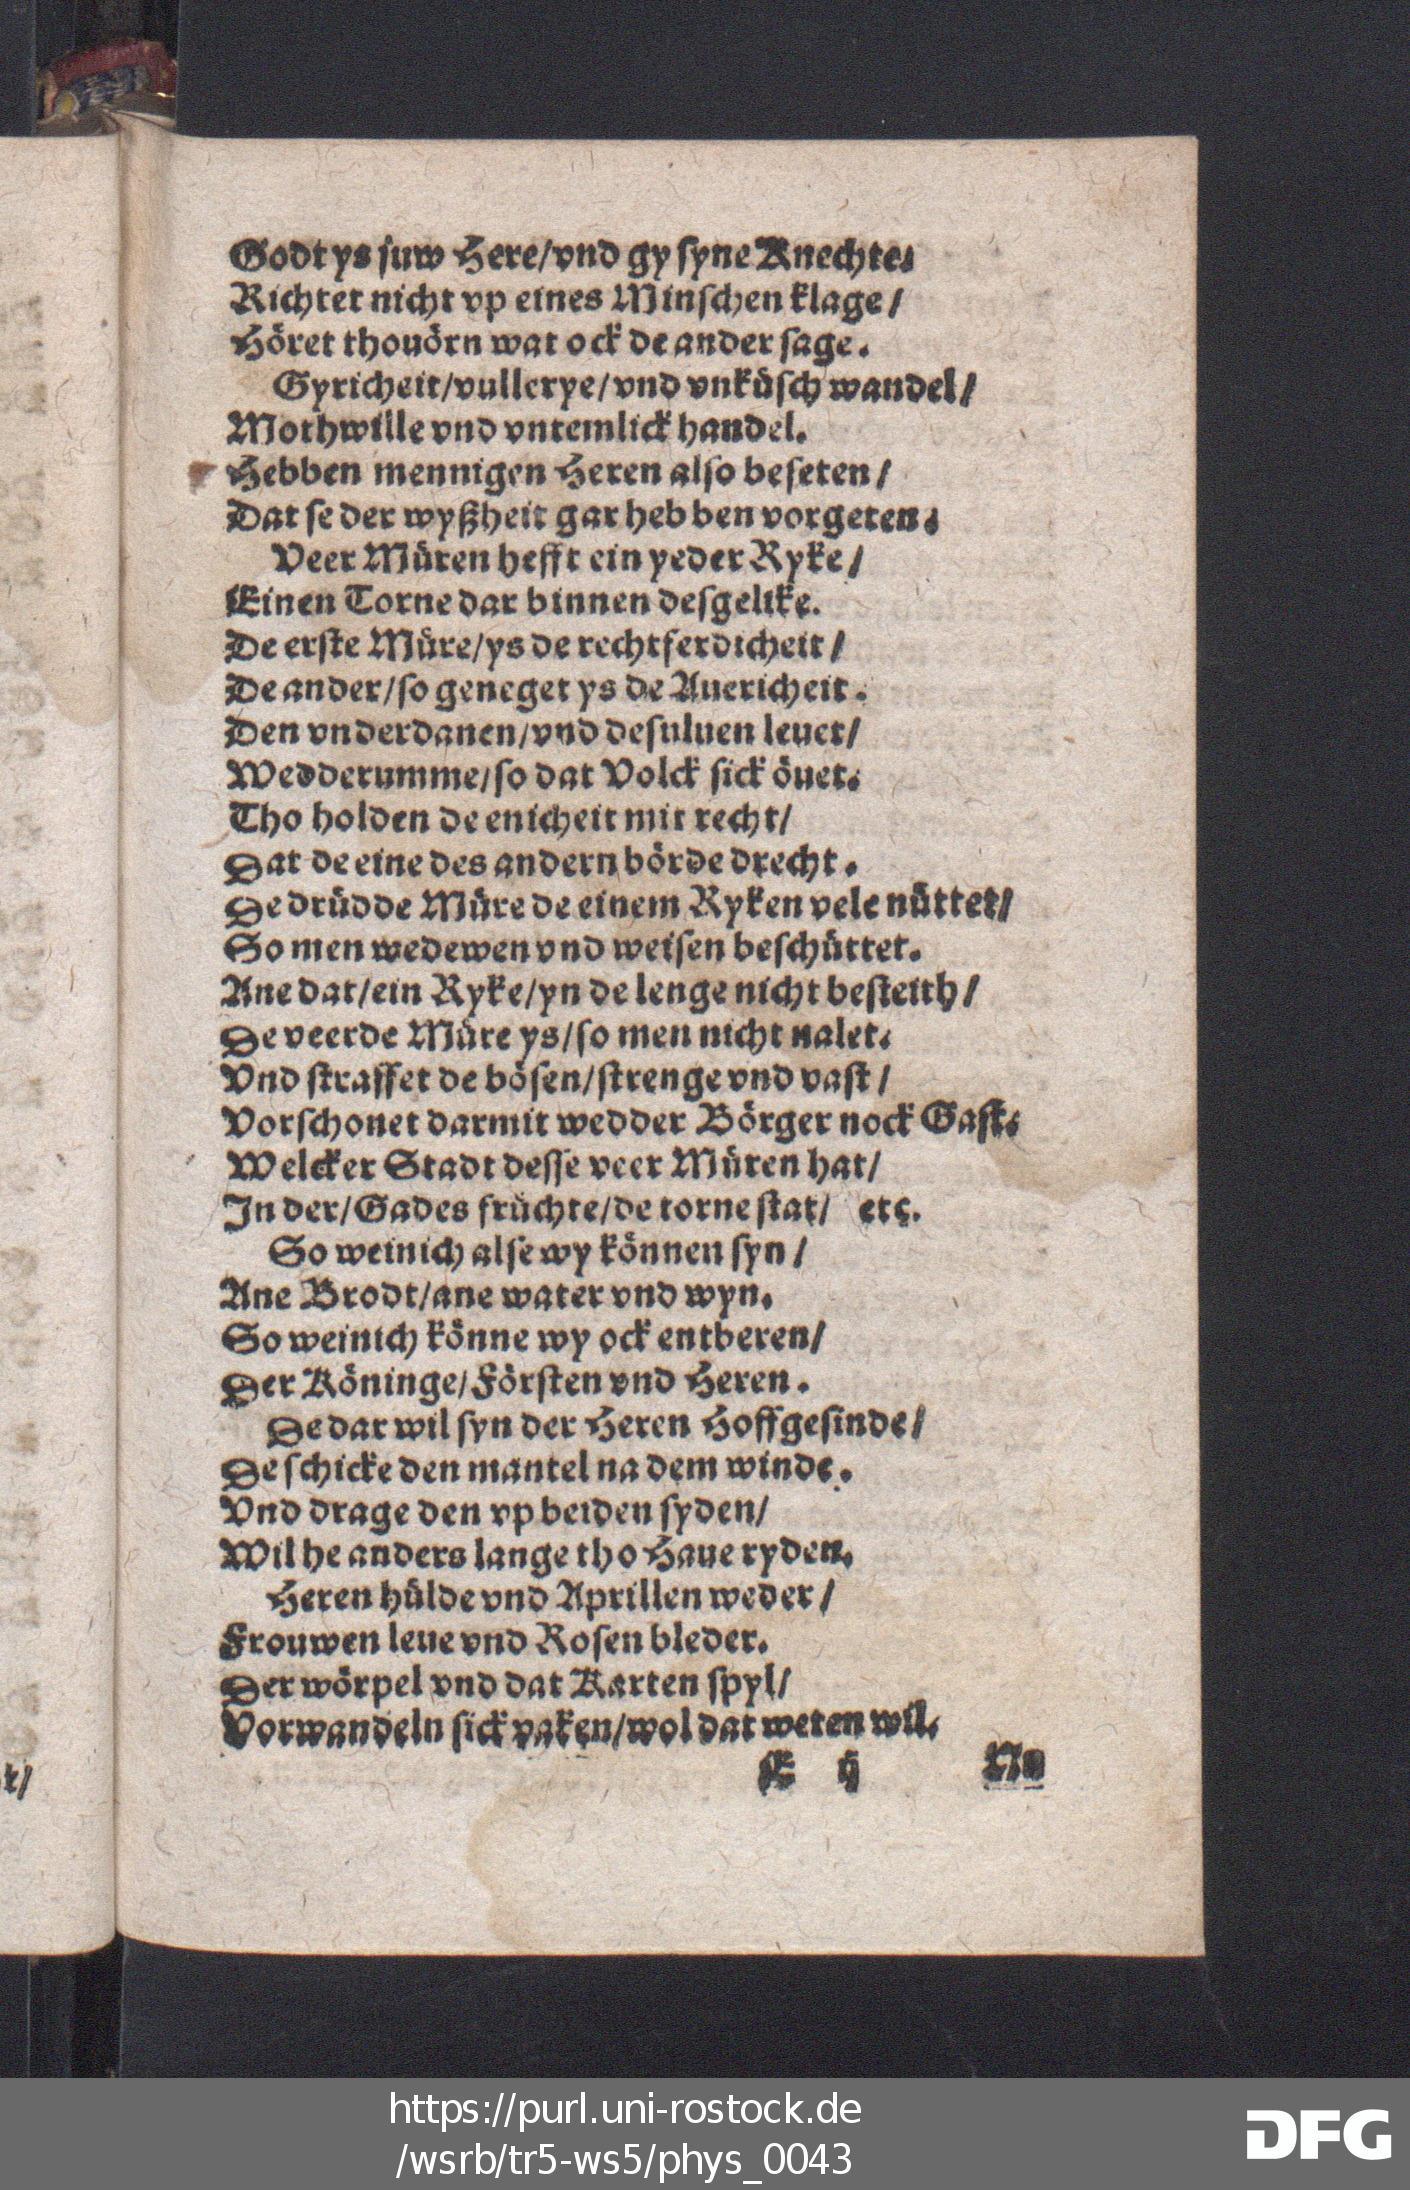 Godt ys juw Here/vnd gy ſyne Knechte.
Richtet nicht vp eines Minſchen klage/
Höret thouörn wat ock de ander ſage.
Gyricheit/vullerye/vnd vnküſch wandel/
Mothwille vnd vntemlick handel.
Hebben mennigen Heren alſo beſeten/
Dat ſe der wyßheit gar hebben vorgeten.
Veer Müren hefft ein yeder Ryke/
Einen Torne dar binnen deſgelike.
De erſte Müre/ys de rechtferdicheit/
De ander/ſo geneget ys de Auericheit.
Den vnderdanen/vnd deſuluen leuet/
Wedderumme/ſo dat Volck ſick öuet.
Tho holden de enicheit mit recht/
Dat de eine des andern börde drecht.
De drüdde Müre de einem Ryken vele nüttet/
So men wedewen vnd weiſen beſchüttet.
Ane dat/ein Ryke/yn de lenge nicht beſteith/
De veerde Müre ys/ſo men nicht nalet.
Vnd ſtraffet de böſen/ſtrenge vnd vaſt/
Vorſchonet darmit wedder Börger nock Gaſt.
Welcker Stadt deſſe veer Müren hat/
In der/Gades früchte/de torne ſtat/ etc.
So weinich alſe wy können ſyn/
Ane Brodt/ane water vnd wyn.
So weinich könne wy ock entberen/
Der Köninge/Förſten vnd Heren.
De dar wil ſyn der Heren Hoffgeſinde/
De ſchicke den mantel na dem winde.
Vnd drage den vp beiden ſyden/
Wil he anders lange tho Haue ryden.
Heren hülde vnd Aprillen weder/
Frouwen leue vnd Roſen bleder.
Der wörpel vnd dat Karten ſpyl/
Vorwandeln ſick vaken/wol dat weten wil.
E ij Na
t/
https://purl.uni-rostock.de
/wsrb/tr5-ws5/phys_0043
DFG